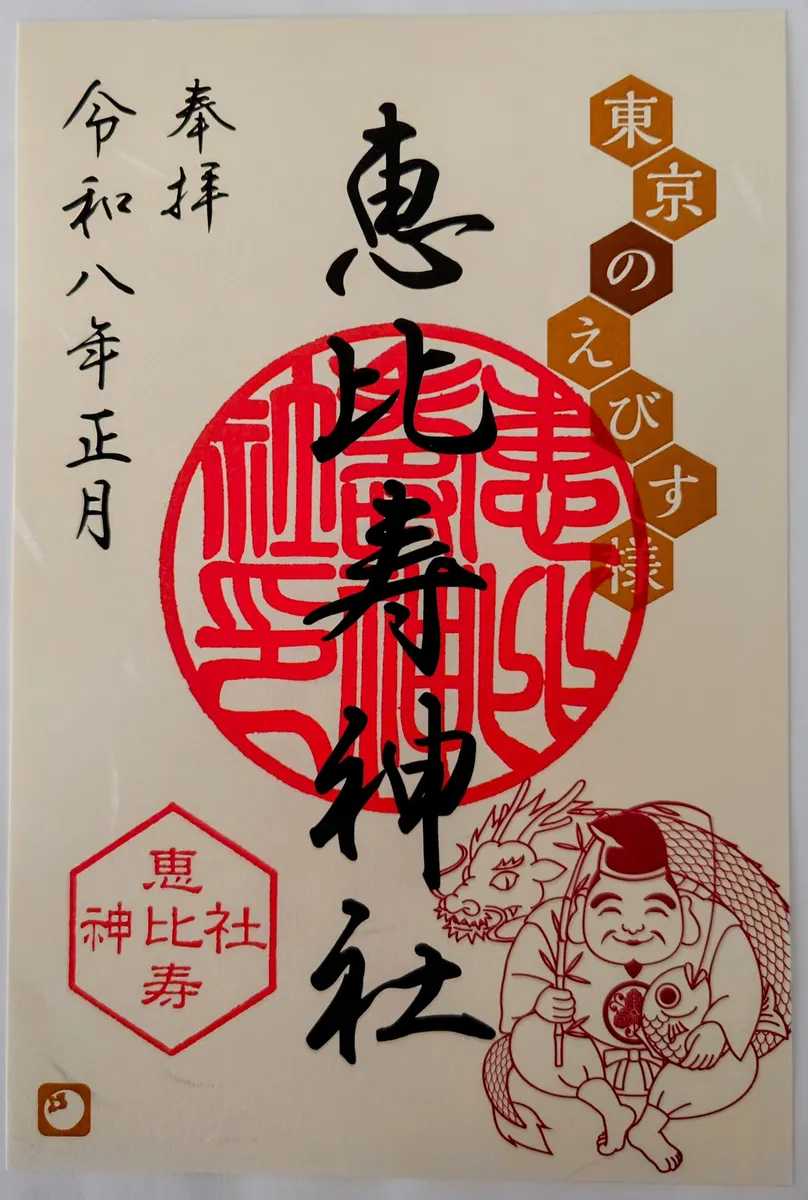 東京のえびす様
恵比寿神社
奉拝
令和八年正月
恵比寿神社印
恵
神比社
寿